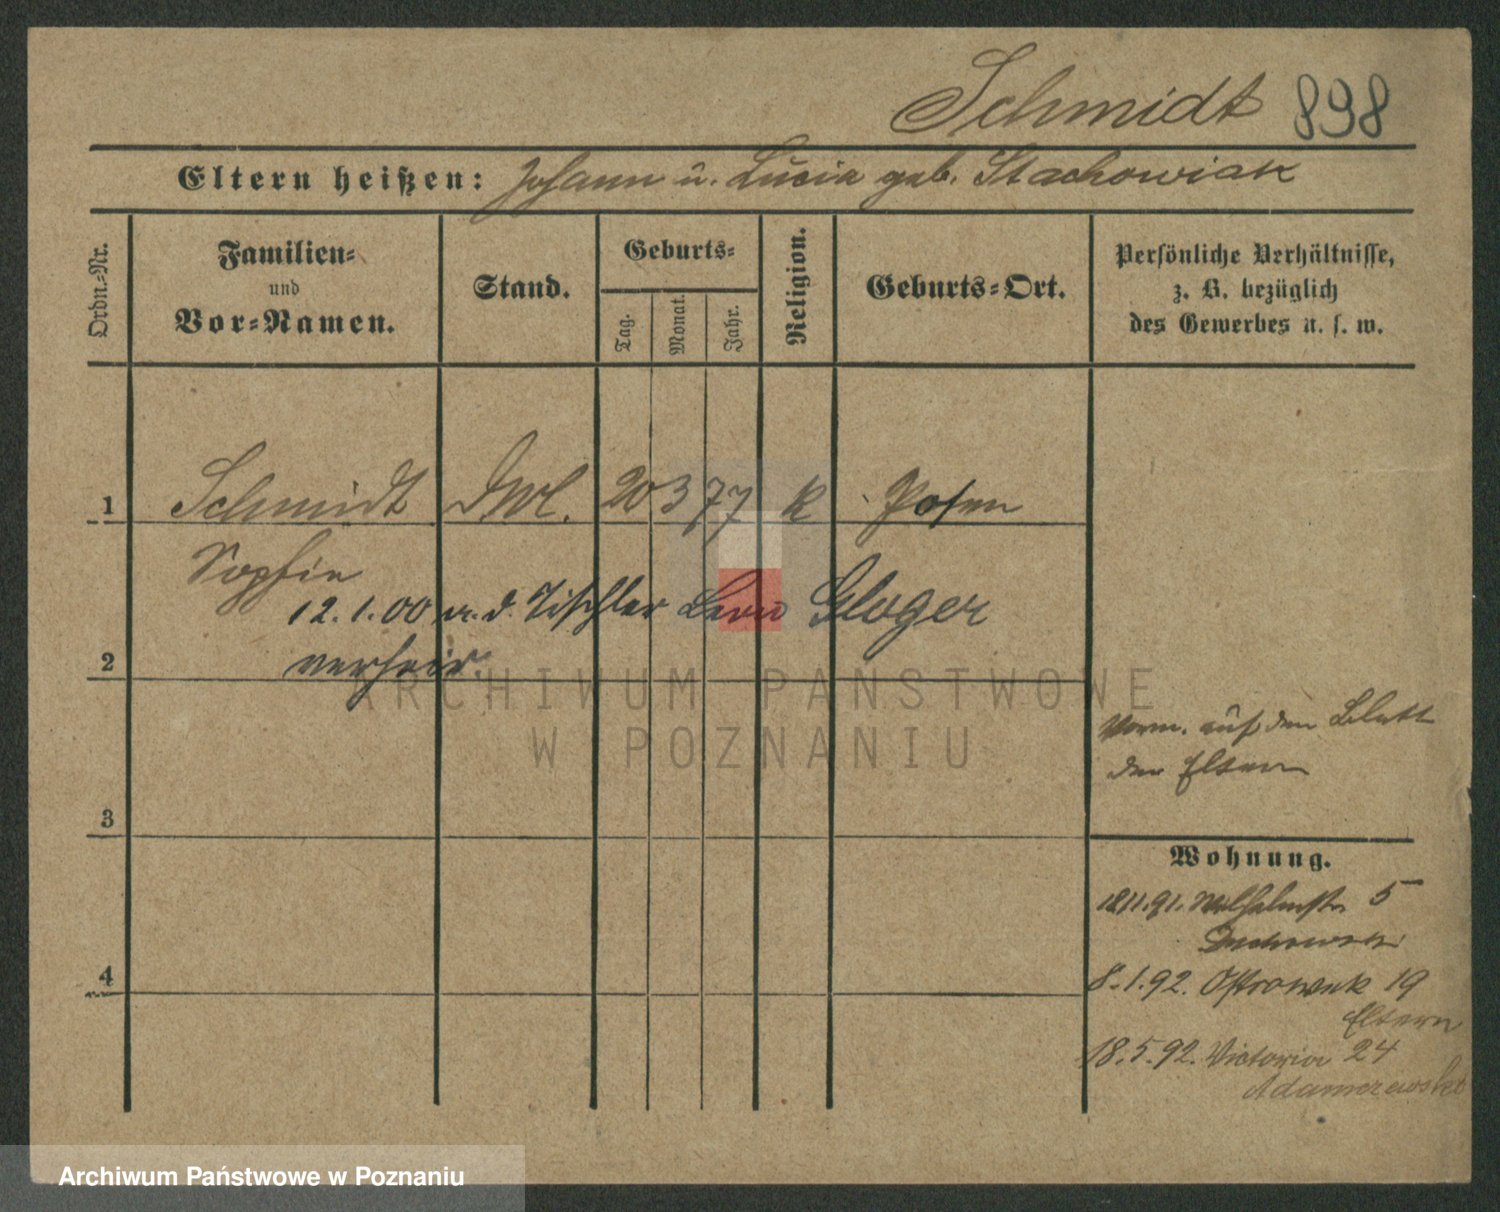 Schmidt 898
Eltern heißen: Johann u. Lucia geb. Stachowiak
Ordn.-Nr.
Familien-
und
Vor-Namen.
Stand.
Geburts-
Tag.
Monat.
Jahr.
Religion.
Geburts-Ort.
Persönliche Verhältnisse,
z. B. bezüglich
des Gewerbes u. s. w.
1 Schmidt 20 3 77 k Posen
Sophie
12.1.00 m. d. Tischler Leon Gloger
2 verheir.
ARCHIWUM PAŃSTWOWE
W POZNANIU
Verm. auf dem Blatt
der Eltern
3
Wohnung.
18.11.91. Wilhelmstr. 5
8.1.92. Ostrowek 19
Eltern
4
18.5.92. Victoria 24
Adamczewski
Archiwum Państwowe w Poznaniu